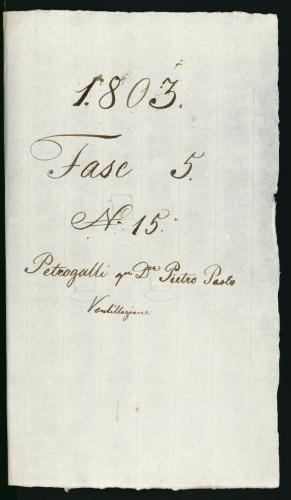 1803.
Fasc 5.
N. 15.
Petrogalli qm Dr Pietro Paolo
Ventillazione